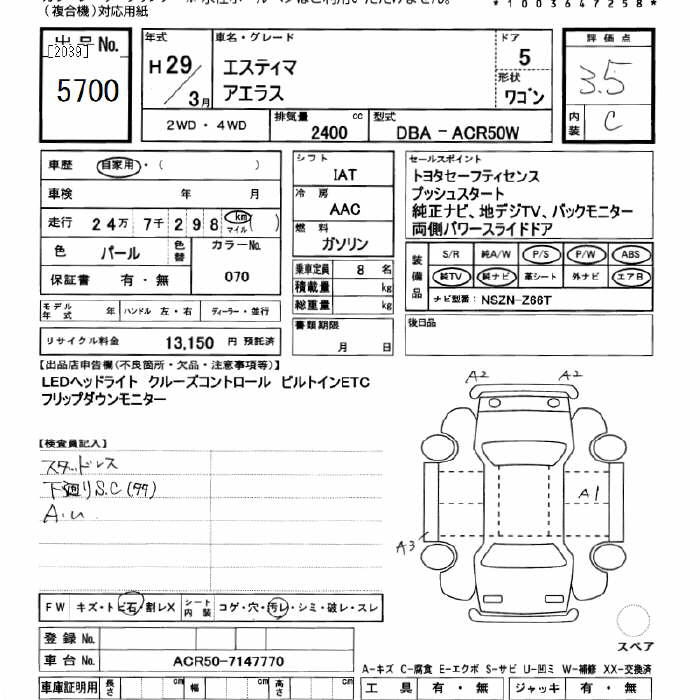 (複合機)対応用紙
*10036472 58*
出品No.
[2039]
5700
年式
H29/3月
車名・グレード
エスティマ
アエラス
ドア
5
形状
ワゴン
評価点
3.5
内装
C
2WD・4WD
排気量 2400 cc
型式 DBA-ACR50W
車歴 自家用・( )
車検 年 月
走行 24万 7千 298 km マイル ( )
色 パール
色替
カラーNo.
070
保証書 有・無
シフト
IAT
冷房
AAC
燃料
ガソリン
乗車定員 8 名
積載量 kg
総重量 kg
書類期限
月 日
セールスポイント
トヨタセーフティセンス
プッシュスタート
純正ナビ、地デジTV、バックモニター
両側パワースライドドア
装備品
S/R 純A/W P/S P/W ABS
純TV 純ナビ 革シート 外ナビ エアB
ナビ型番: NSZN-Z66T
後日品
モデル年式 年 ハンドル 左・右 ディーラー・並行
リサイクル料金 13,150 円 預託済
【出品店申告欄(不良箇所・欠品・注意事項等)】
LEDヘッドライト クルーズコントロール ビルトインETC
フリップダウンモニター
【検査員記入】
スタッドレス
下廻りS.C(タタ)
A.U
A2 A2
A1
A3
FW キズ・トビ石・割レX シート内装 コゲ・穴・汚レ・シミ・破レ・スレ
登録No.
車台No. ACR50-7147770
スペア
A-キズ C-腐食 E-エクボ S-サビ U-凹ミ W-補修 XX-交換済
車庫証明用 長さ cm 幅 cm 高さ cm
工具 有・無 ジャッキ 有・無